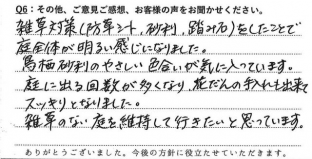 Q6：その他、ご意見ご感想、お客様の声をお聞かせください。
雑草対策(防草シート、砂利、踏み石)をしたことで
庭全体が明るい感じになりました。
烏栖砂利のやさしい色合いが気に入っています。
庭に出る回数が多くなり 花だんの手入れも出来て
スッキリとなりました。
雑草のない庭を維持して行きたいと思っています。
ありがとうございました。今後の方針に役立たせていただきます。